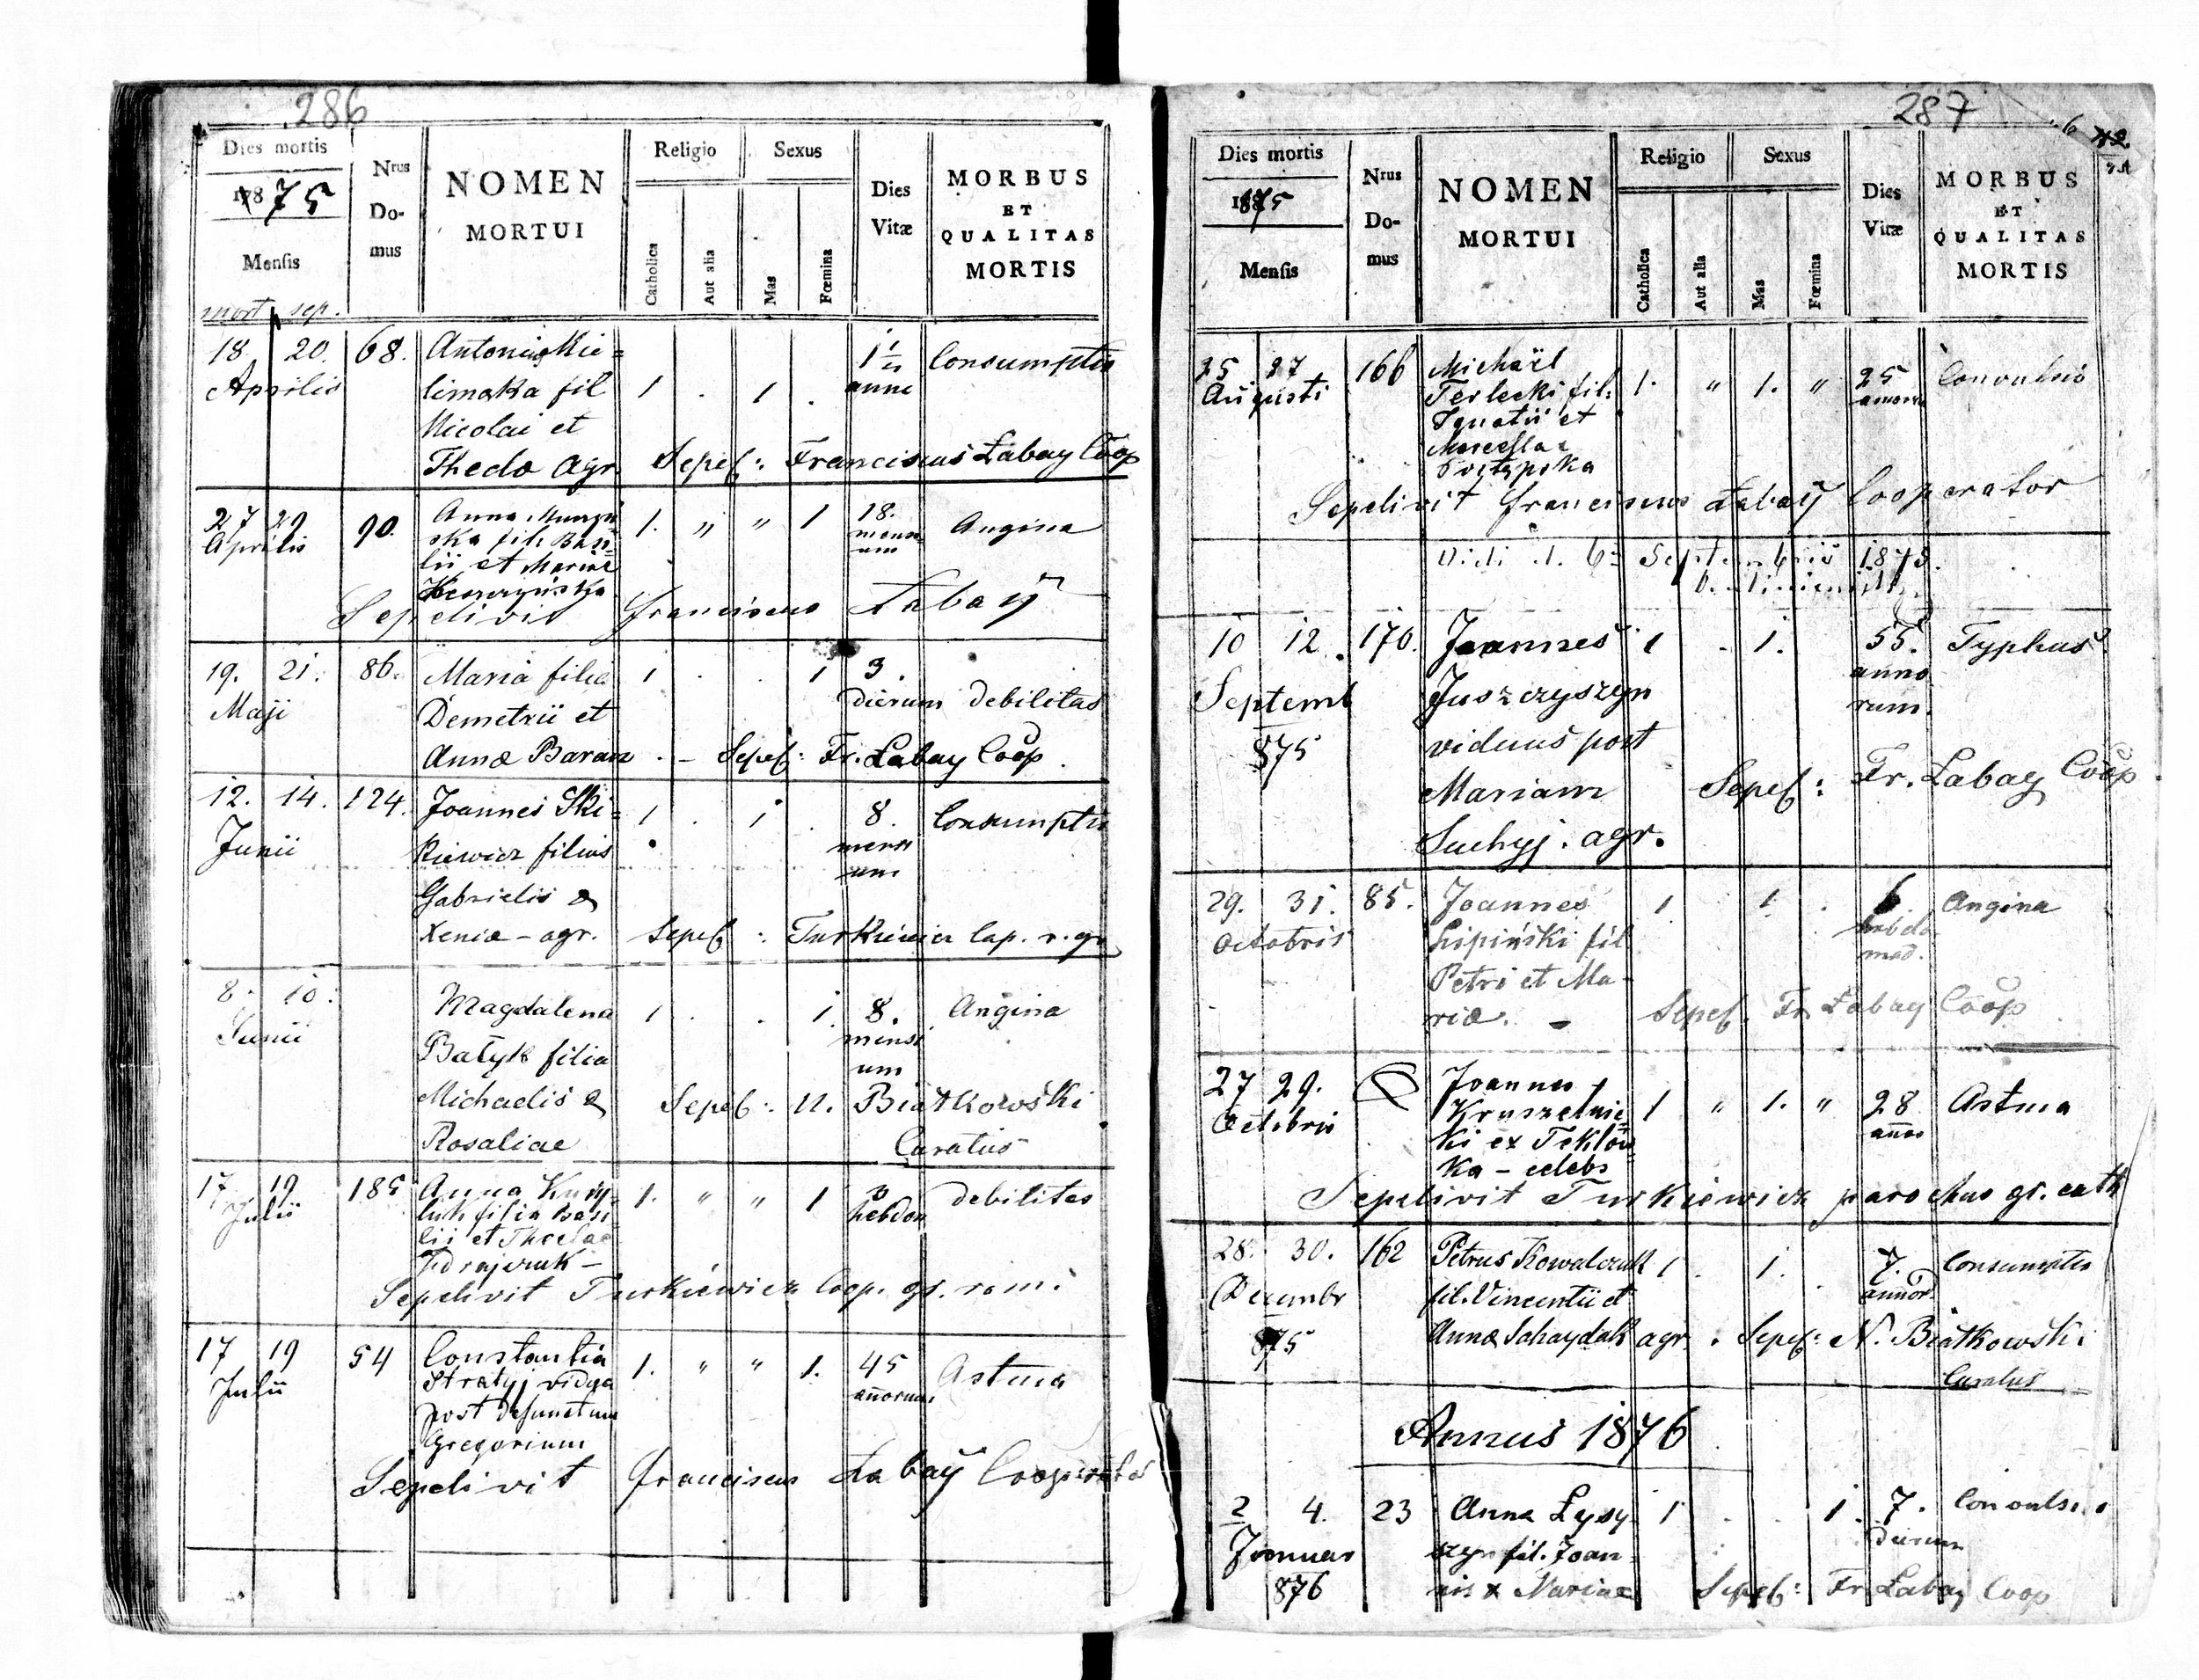 286
Dies mortis
1875
Mensis
mort. sep.
Nrus Do- mus
NOMEN
MORTUI
Religio
Catholica
Aut alia
Sexus
Mas
Fœmina
Dies
Vitæ
MORBUS
ET
QUALITAS
MORTIS
18. 20. 68. Antonius Kli= 1 . 1 . 1 1/2 Consumptio
Aprilis limaka fil anni
Nicolai et
Theclæ agr. Sepel: Franciscus Łabay Coop
27 29 90. Anna 1. " " 1 18. Angina
Aprilis ska filia Basi mens
lii et Mariæ um
Sepelivit Franciscus Łabaÿ
19. 21. 86. Maria filia 1 . . 1 3.
Maji Demetrii et dierum debilitas
Annæ Baran . - Sepel: Fr. Łabay Coop.
12. 14. 124. Joannes Ski= 1 . 1 . 8. Consumptio
Junii kiewicz filius mensi
Gabrielis & um
Xeniæ - agr. Sepel: Turkiewicz Cap. r. gr
8. 10. Magdalena 1 . . 1. 8. Angina
Junii Batyk filia mensi
Michaelis & um
Rosaliae Sepel: N. Białkowski
Curatus
17 19 185 Anna Kury- 1. " " 1 3 debilitas
Julii luk filia Basi hebdom
lii et Theclae
Sepelivit Turkiewicz Coop. gr. rom.
17 19 54 Constantia 1. " " 1. 45 Astma
Julii Stratyj vidua añorum
post defunctum
Gregorium
Sepelivit Franciscus Łabaÿ Cooperator
287
Dies mortis
1875
Mensis
Nrus Do- mus
NOMEN
MORTUI
Religio
Catholica
Aut alia
Sexus
Mas
Fœmina
Dies
Vitæ
MORBUS
ET
QUALITAS
MORTIS
25 27 166 Michaël 1. " 1. " 25 Convulsio
Augusti Terlecki fil: annorum
Ignatii et
Marcellae
Sepelivit Franciscus Łabaÿ Cooperator
Vidi d. 6. Septembris 1875.
10 12. 170. Joannes 1 . 1. 55. Typhus.
Septemb Juszczyszyn anno
875 viduus post rum.
Mariam Sepel: Fr. Łabay Coop
Suchyj. agr.
29. 31. 85. Joannes 1 . 1 . 6. Angina
Octobris Lipiński fil hebdo
Petri et Ma- mad.
riæ. - Sepel. Fr Łabay Coop
27 29. Joannes 1 " 1. " 28 Astma
Octobris Kruszelnic= annor
ki ex Teklów=
ka - celebs
Sepelivit Turkiewicz parochus gr. cath
28. 30. 162 Petrus Kowalczuk 1 . 1 . 7. Consumptio
Decembr fil. Vincentii et annor.
875 Annæ Sahaydak agr. Sepel: N. Białkowski
Curatus
Annus 1876
2 4. 23 Anna Łysy 1 . . 1. 7. Convulsio
Januar szyn fil. Joan= dierum
876 nis & Mariae Sepel: Fr. Łabay Coop